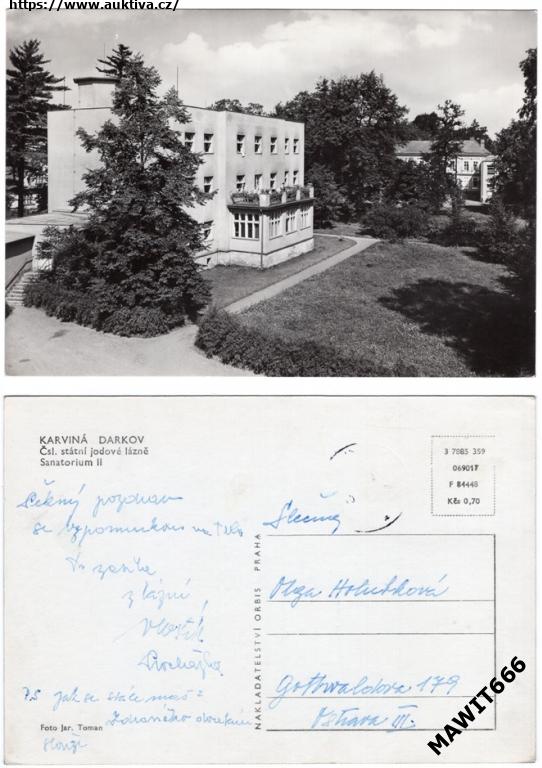 https://www.auktiva.cz/
KARVINÁ DARKOV
Čsl. státní jodové lázně
Sanatorium II
3 7885 359
069017
F 84448
Kčs 0,70
Pěkný pozdrav
se vzpomínkou na Tebe
Ti zasílá
z lázní
Slečna
Olga Holubková
Gottwaldova 179
Ostrava III.
PS jak se stále máš?
Foto Jar. Toman
NAKLADATELSTVÍ ORBIS PRAHA
MAWIT666